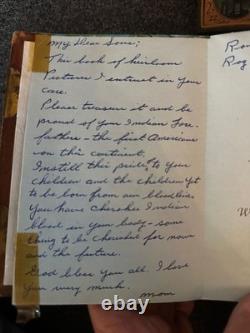 My Dear Sons;
This book of heirloom
Pictures I entrust in your
care.
Please treasure it and be
proud of your Indian Fore-
fathers - the first Americans
on this continent.
Instill this pride to your
children and the children yet
to be born from our bloodline.
You have Cherokee Indian
blood in your body - some
thing to be cherished for now
and the future.
God bless you all. I love
you very much.
Mom
Ro
Ray
W